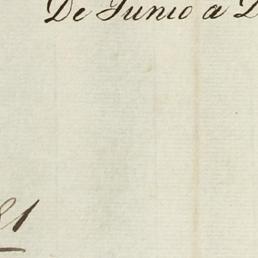 De Junio a
81